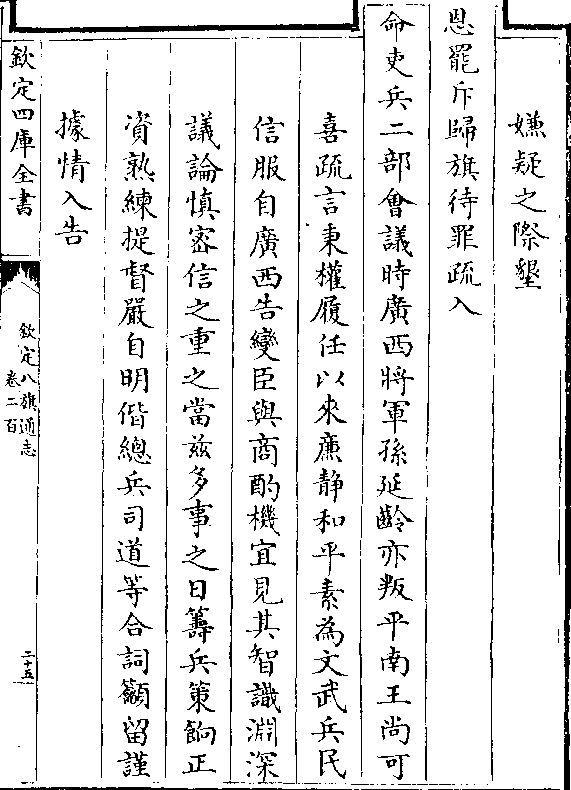 嫌疑之際墾
恩罷斥歸旗待罪疏入
命吏兵二部會議時廣西將軍孫延齡亦叛平南王尚可
喜疏言秉權履任以來廉静和平素為文武兵民
信服自廣西告變臣與商酌機宜見其智識淵深
議論慎密信之重之當兹多事之日籌兵策餉正
資熟練提督嚴自明偕總兵司道等合詞籲留謹
據情入告
欽定四庫全書
欽定八旗通志
卷二百
二十五